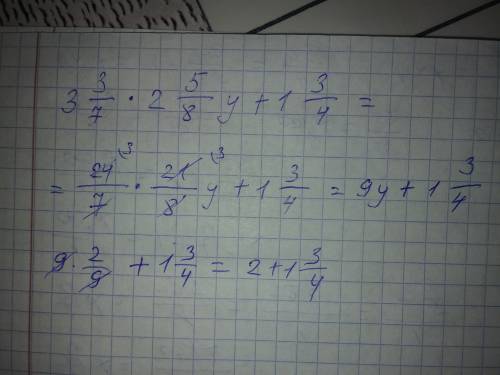 3 3/7 · 2 5/8 y + 1 3/4 =
= 24/7 · 21/8 y + 1 3/4 = 9y + 1 3/4
9 · 2/9 + 1 3/4 = 2 + 1 3/4